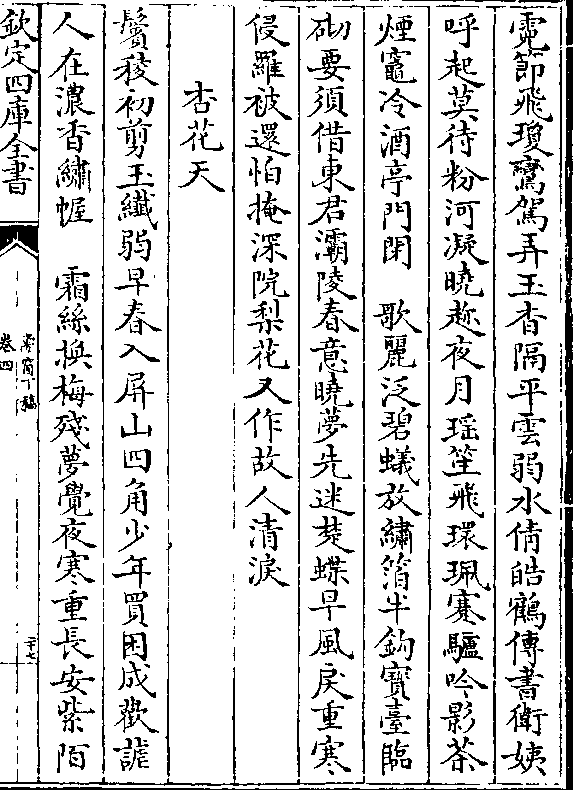 霓節飛瓊鸞駕弄玉杳隔平雲弱水倩皓鶴傳書衛姨
呼起莫待粉河凝曉趂夜月瑶笙飛環珮蹇驢吟影茶
煙竈冷酒亭門閉　歌麗泛碧蟻放繡箔半鈎寳臺臨
砌要須借東君灞陵春意曉夢先迷楚蝶早風戾重寒
侵羅被還怕掩深院梨花又作故人清淚
杏花天
鬢稜初剪玉纎弱早春入屏山四角少年買困成歡謔
人在濃香繡幄　霜絲換梅殘夢覺夜寒重長安紫陌
欽定四庫全書
卷四